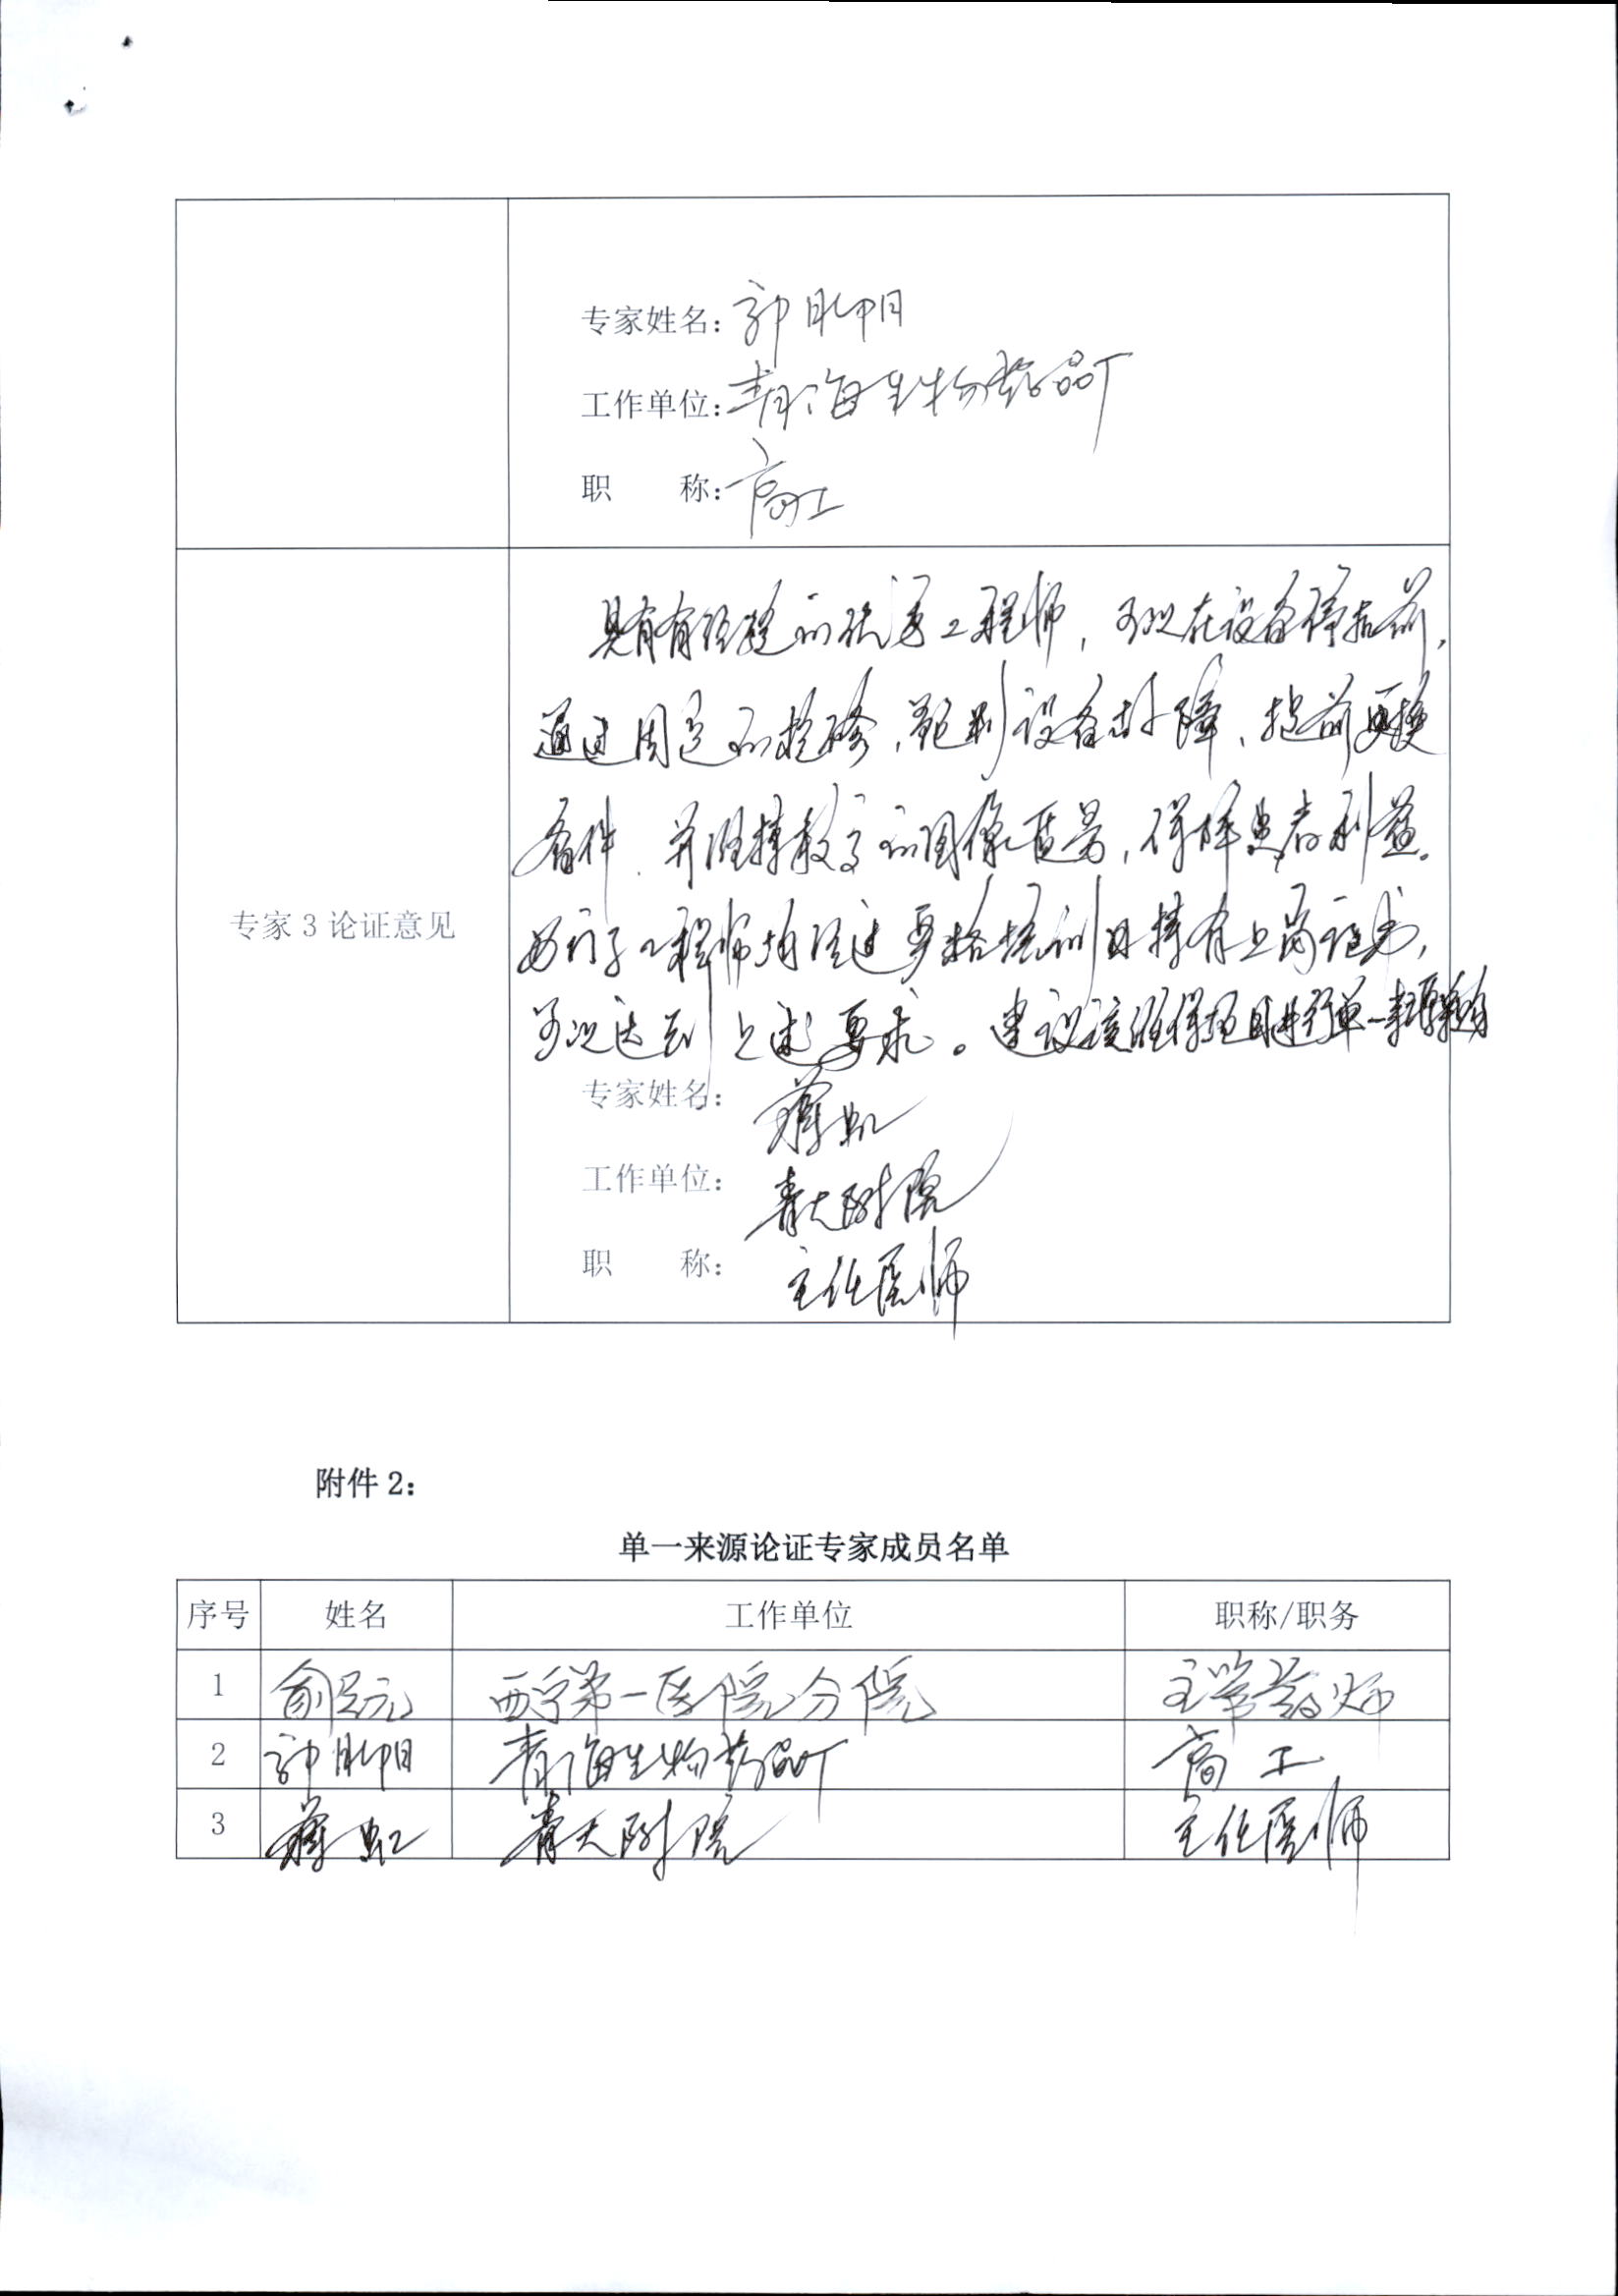 专家姓名：郭聊阳
工作单位：青海生物药品厂
职 称：高工
具有有经验的硬件工程师，可以在设备停转前，
通过周邊的检修，觉判设备故障，提前更换
备件，并维持較高的图像质量，保障患者利益。
西门子工程师均经过严格培训且持有上岗证书，
可以达到上述要求。建议该维保项目进行单一来源采购
专家3论证意见
专家姓名：蒋虹
工作单位：青大附院
职 称：主任医师
附件2：
单一来源论证专家成员名单
序号 姓名 工作单位 职称/职务
1 西宁第一医院分院 主管药师
2 青海生物药品厂 高工
3 蒋虹 青大附院 主任医师